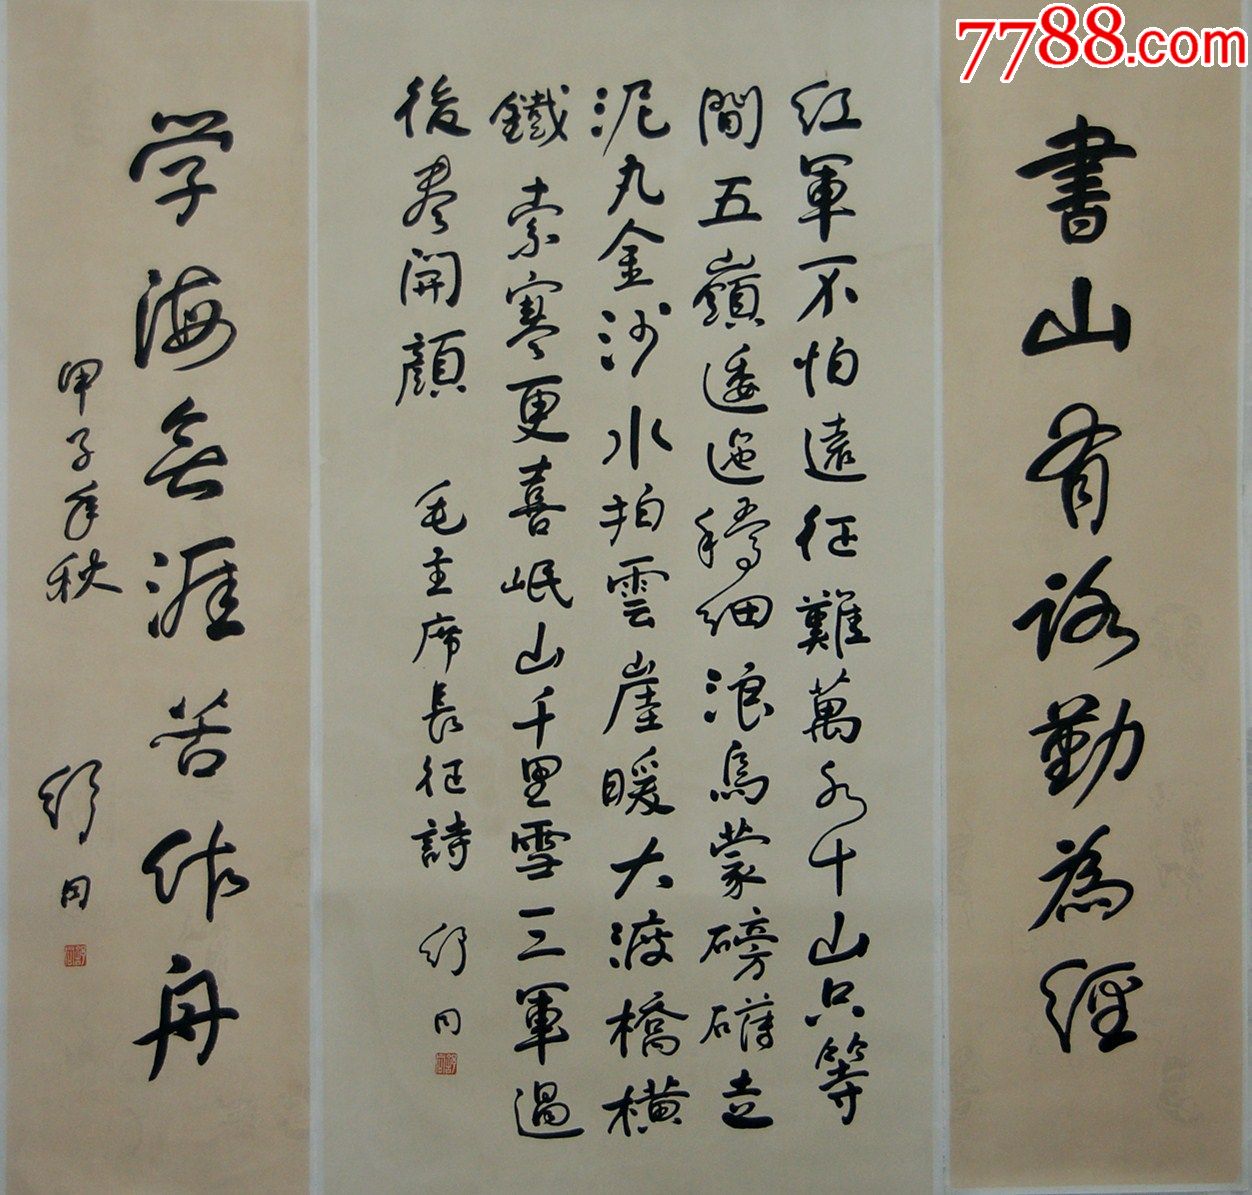 7788.com
書山有路勤為經
紅軍不怕遠征難萬水千山只等
間五嶺逶迤騰細浪烏蒙磅礴走
泥丸金沙水拍雲崖暖大渡橋橫
鐵索寒更喜岷山千里雪三軍過
後盡開顏 毛主席長征詩 舒同
学海無涯苦作舟
甲子年秋 舒同